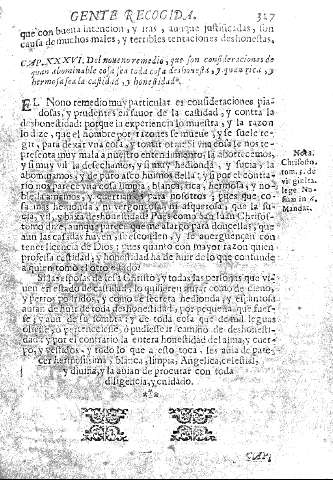 GENTE RECOGIDA. 327
que con buena intencion, y tras, aunque justificadas, son
causa de muchos males, y terribles tentaciones deshonestas,
CAP. XXXVI. Del noueno remedio, que son consideraciones de
quan abominable cosa sea toda cosa deshonesta, y quan rica, y
hermosa sea la castidad, y honestidad.
EL Nono remedio muy particular es consideraciones pia-
dosas, y prudentes en fauor de la castidad, y contra la
deshonestidad: porque la experiencia lo muestra, y la razon
lo dize, que el hombre por razones se mueue, y se suele re-
gir, para dexar vna cosa, y tomar otra: si vna cosa le nos re-
presenta muy mala a nuestro entendimiento, la aborrecemos,
y si muy vil la desechamos, y si muy hedionda, y sucia la
abominamos, y de puro asco huimos della: y si por el contra-
rio nos parece vna cosa limpia, blanca, rica, hermosa, y no-
ble la amamos, y queremos para nosotros; pues que co-
sa mas hedionda, ni vergonçosa, ni asquerosa, que la su-
cia, vil, y baxa deshonestidad? Pues como san Iuan Chrisos-
tomo dize, aunque parece que me alargo para donzellas, que
aun las casadas huyen, se esconden, y se auerguençan con
tener licencia de Dios: pues quanto con mayor razon quien
professa castidad, y honestidad ha de huir de lo que confunde
a quien tomo el otro estado?
Si las esposas de Iesu Christo, y todas las personas que vi-
uen en estado de castidad, lo quisieren mirar como de cieno,
y perros podridos, y como de secreta hedionda, y espantosa
auian de huir de toda deshonestidad, por pequeña que fues-
se, y aun de su sombra, y de toda cosa que de mil leguas
oliesse, o perteneciesse, o pudiesse ir camino de deshonesti-
dad: y por el contrario la entera honestidad del alma, y cuer-
po, y vestidos, y todo lo que a esto toca, les auia de pare-
cer hermosissima, y blanca, limpia, Angelica, celestial,
y diuina, y la auian de procurar con toda
diligencia, y cuidado.
Nota.
Chrisosto.
tom. 5. de
virginita.
lege No-
stram in 6.
Mandat.
CAP.